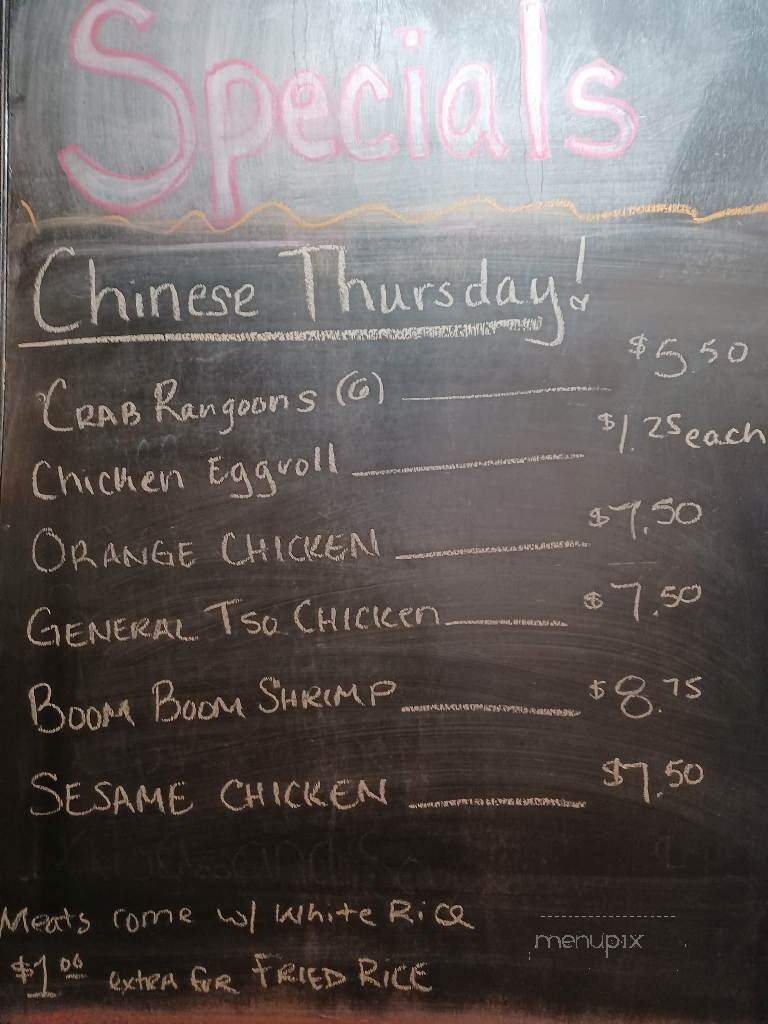 Specials
Chinese Thursday!
CRAB Rangoons (6) $5.50
Chicken Eggroll $1.25 each
ORANGE CHICKEN $7.50
GENERAL TSO CHICKEN $7.50
BOOM BOOM SHRIMP $8.75
SESAME CHICKEN $7.50
Meats come w/ White Rice
$1.00 extra for FRIED RICE
menupix